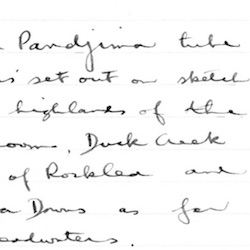 Pandjima tribe
set out on sketch
highlands of the
rooms, Duck Creek
of Rocklea and
Downs as far
eadwaters.